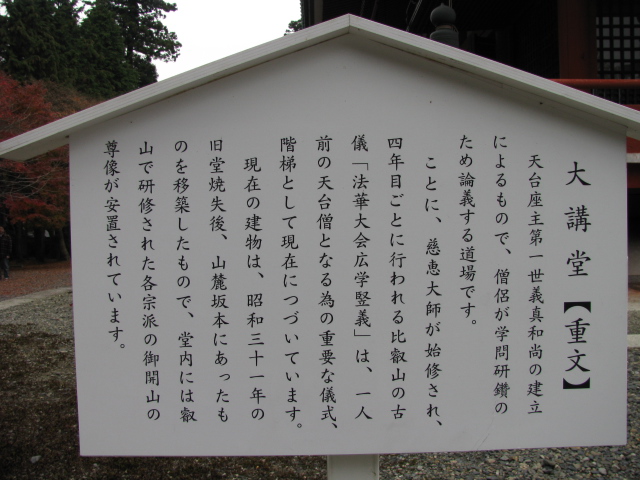 大講堂【重文】
天台座主第一世義真和尚の建立
によるもので、僧侶が学問研鑽の
ため論義する道場です。
ことに、慈恵大師が始修され、
四年目ごとに行われる比叡山の古
儀「法華大会広学竪義」は、一人
前の天台僧となる為の重要な儀式、
階梯として現在につづいています。
現在の建物は、昭和三十一年の
旧堂焼失後、山麓坂本にあったも
のを移築したもので、堂内には叡
山で研修された各宗派の御開山の
尊像が安置されています。